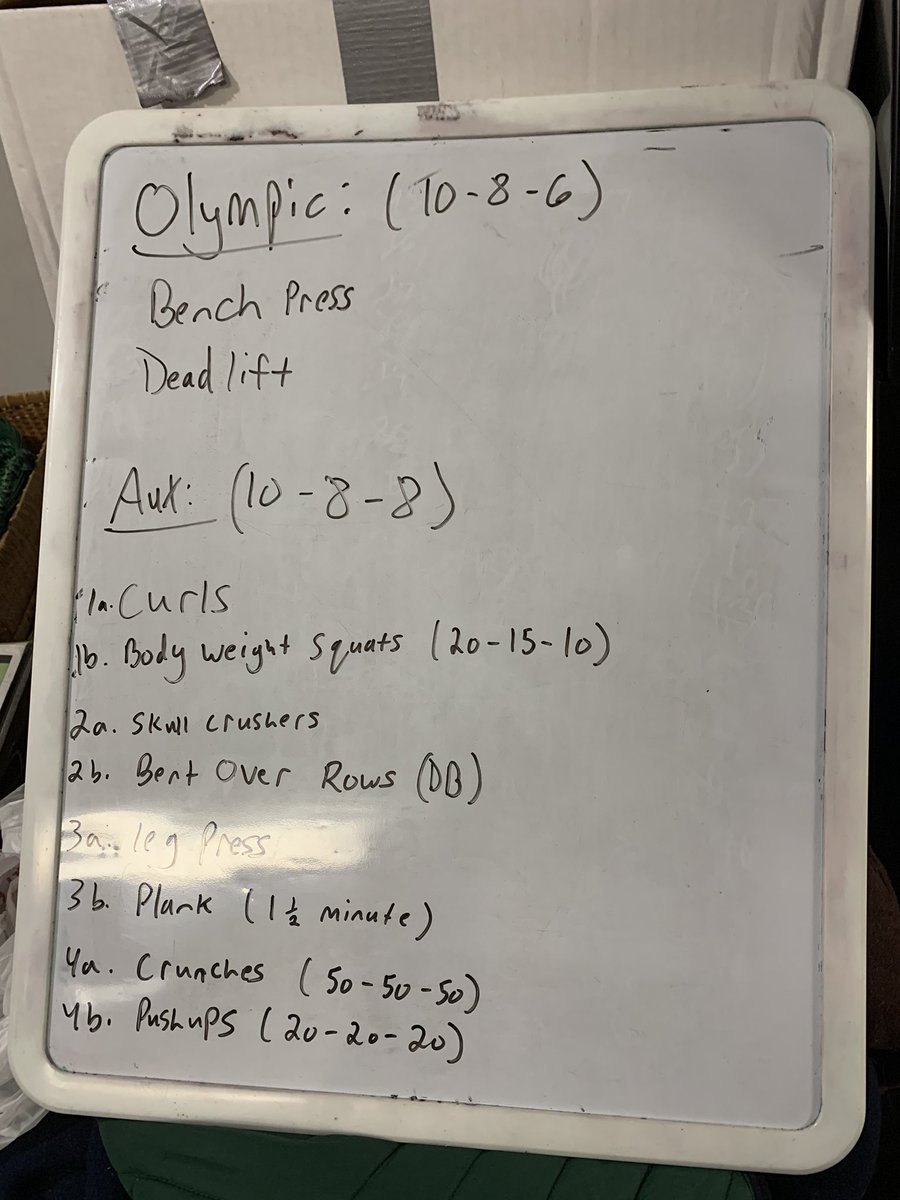 Olympic: (10-8-6)
Bench Press
Deadlift
Aux: (10-8-8)
1a. Curls
1b. Body weight Squats (20-15-10)
2a. Skull crushers
2b. Bent Over Rows (DB)
3a. leg Press
3b. Plank (1 ½ minute)
4a. Crunches (50-50-50)
4b. Pushups (20-20-20)